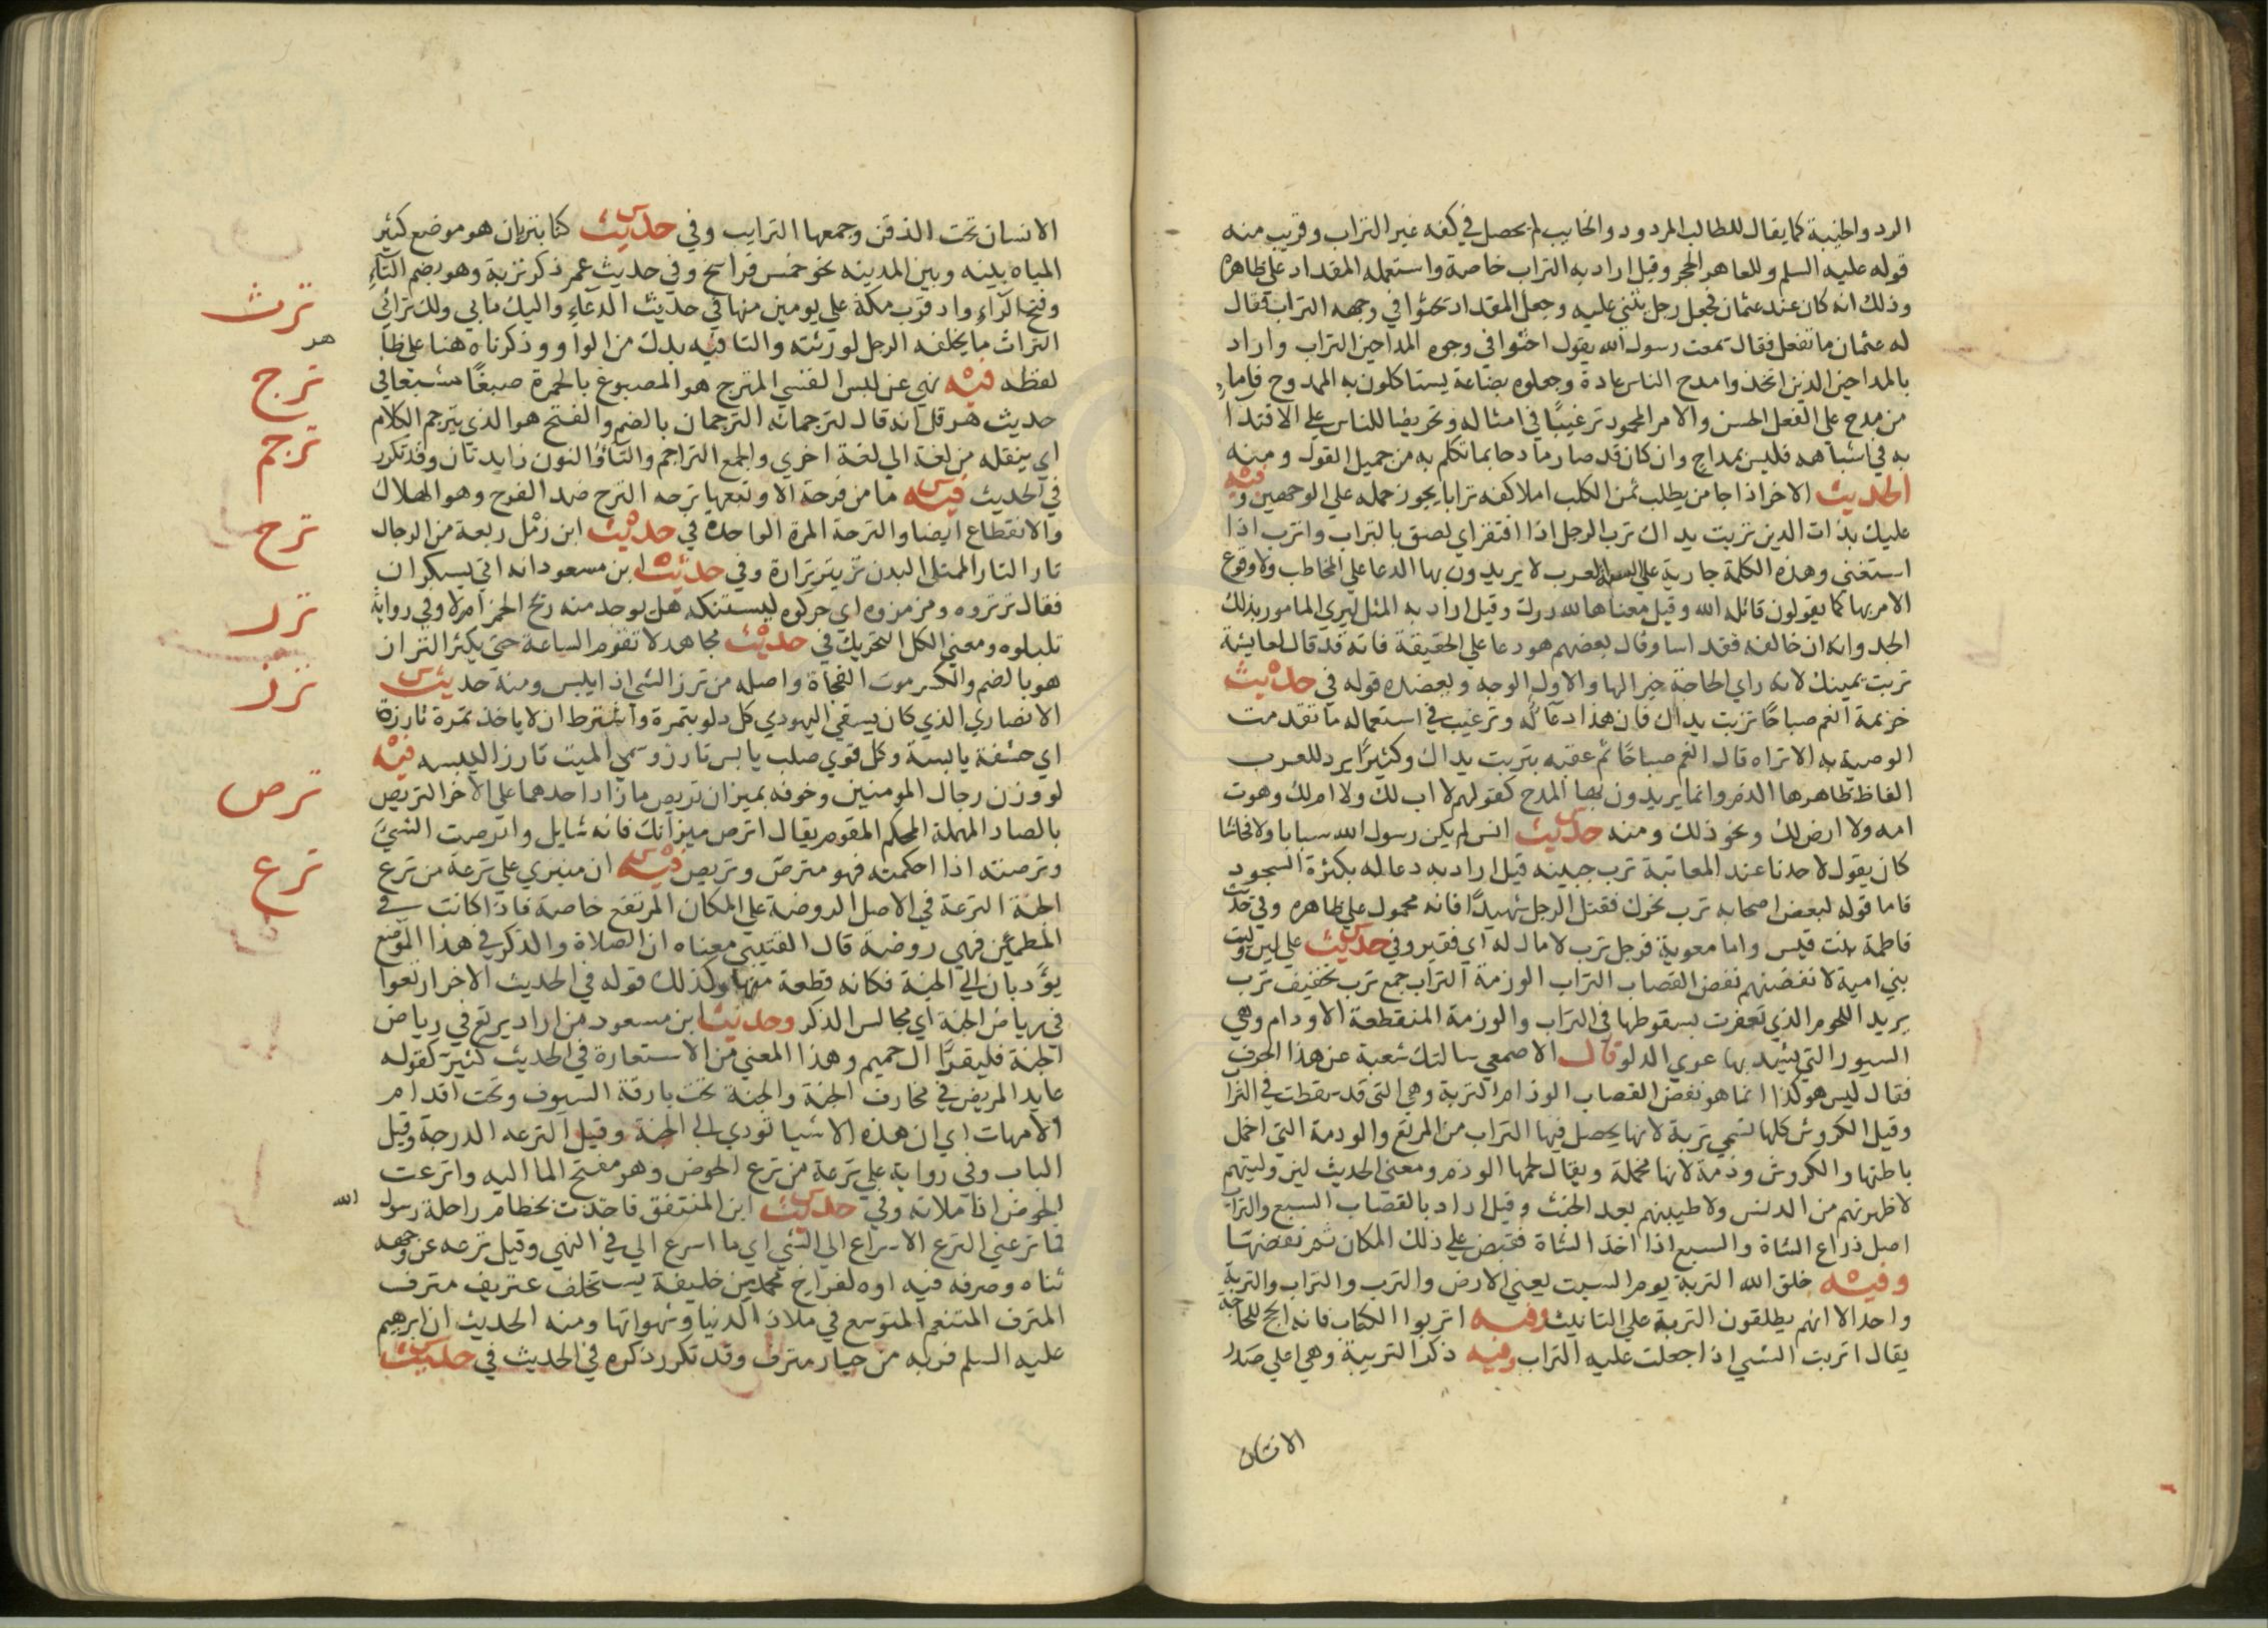 الرد والخيبة كما يقال للطالب المردود والخايب لم يحصل في كفه غير التراب وقريب منه
قوله عليه السلم وللعاهر الحجر وقيل اراد به التراب خاصة واستعمله المقداد على ظاهره
وذلك انه كان عند عثمان فجعل رجل يثني عليه وجعل المقداد يحثوا في وجهه التراب فقال
له عثمان ما تفعل فقال سمعت رسول الله يقول احثوا في وجوه المداحين التراب واراد
بالمداحين الذين اتخذوا مدح الناس عادة وجعلوه بضاعة يستاكلون به الممدوح فاما
من مدح على الفعل الحسن والامر المحمود ترغيبًا في امثاله وتحريضا للناس على الاقتدا
به في اشباهه فليس بمداح وان كان قد صار مادحا بما تكلم به من جميل القول ومنه
الحديث الاخر اذا جا من يطلب ثمن الكلب املا كفه ترابا يجوز حمله على الوجهين وفيه
عليك بذات الدين تربت يداك ترب الرجل اذا افتقر اي لصق بالتراب واترب اذا
استغنى وهذه الكلمة جارية على السنة العرب لا يريدون بها الدعا على المخاطب ولا وقوع
الامر بها كما يقولون قاتله الله وقيل معناها لله درك وقيل اراد به المثل ليري المامور بذلك
الجد وانه ان خالفه فقد اسا وقال بعضهم هو دعا على الحقيقة فانه قد قال لعايشة
تربت يمينك لانه راي الحاجة خيرا لها والاول الوجه ويعضده قوله في حديث
خزيمة انعم صباحًا تربت يداك فان هذا دعآ له وترغيب في استعماله ما تقدمت
الوصية به الا تراه قال انعم صباحًا ثم عقبه بتربت يداك وكثيرًا يرد للعرب
الفاظ ظاهرها الذم وانما يريدون بها المدح كقولهم لا اب لك ولا ام لك وهوت
امه ولا ارض لك ونحو ذلك ومنه حديث انس لم يكن رسول الله سبابا ولا فحاشا
كان يقول لاحدنا عند المعاتبة ترب جبينه قيل اراد به دعا له بكثرة السجود
فاما قوله لبعض اصحابه ترب نحرك فقتل الرجل شهيدًا فانه محمول على ظاهره وفي حديث
فاطمة بنت قيس واما معوية فرجل ترب لا مال له اي فقير وفي حديث علي لين وليت
بني امية لانفضنهم نفض القصاب التراب الوزمة التراب جمع ترب تخفيف ترب
يريد اللحوم الذي تعفرت بسقوطها في التراب والوزمة المنقطعة الاوذام وهي
السيور التي يشد بها عري الدلو قال الاصمعي سالتك شعبة عن هذا الحرف
فقال ليس هو كذا انما هو نفض القصاب الوذام التربة وهي التي قد سقطت في الترا
وقيل الكروش كلها تسمي تربة لانها يحصل فيها التراب من المرتع والوذمة التي اخمل
باطنها والكروش وذمة لانها مخملة ويقال لحمها الوذم ومعنى الحديث لين وليتهم
لاطهرنهم من الدنس ولاطيبنهم بعد الخبث وقيل اراد بالقصاب السبع والتراب
اصل ذراع الشاة والسبع اذا اخذ الشاة فقبض على ذلك المكان ثم نفضها
وفيه خلق الله التربة يوم السبت يعني الارض والترب والتراب والتربة
واحد الا انهم يطلقون التربة على التانيث وفيه اتربوا الكتاب فانه انجح للحاجة
يقال اتربت الشي اذا جعلت عليه التراب وفيه ذكر التريبة وهي اعلي صدر
الانسان
الانسان تحت الذقن وجمعها الترايب وفي حديث كنا بتربان هو موضع كثير
المياه بينه وبين المدينه نحو خمس فراسخ وفي حديث عمر ذكر تربة وهو بضم التآء
وفتح الرآء واد قرب مكة على يومين منها في حديث الدعاء واليك مابي ولك تراثي
ترث
التراث ما يخلفه الرجل لورثته والتا فيه بدل من الواو وذكرناه هنا على ظا
هر
لفظه فيه نهي عن لبس القسي المترج هو المصبوغ بالحمرة صبغًا مشبعا في
ترج
حديث هرقل انه قال لترجمانه الترجمان بالضم والفتح هو الذي يترجم الكلام
ترجم
اي ينقله من لغة الي لغة اخري والجمع التراجم والتآؤ النون زايدتان وقد تكرر
في الحديث فيه ما من فرحة الا وتبعها ترحه الترح ضد الفرح وهو الهلاك
ترح
والانقطاع ايضا والترحة المرة الواحدة في حديث ابن زمل ربعة من الرجال
تار التار الممتلي البدن تر يتر ترارة وفي حديث ابن مسعود انه اتي بسكران
ترر
فقال ترتروه ومزمزوه اي حركوه ليستنكه هل يوجد منه ريح الخمر ام لا وفي رواية
تلتلوه ومعني الكل التحريك في حديث مجاهد لا تقوم الساعة حتي يكثر التراز
ترز
هو بالضم والكسر موت الفجاة واصله من ترز الشي اذا يبس ومنه حديث
الانصاري الذي كان يسقي اليهودي كل دلو بتمرة واشترط ان لا ياخذ تمرة تارزة
اي حشفة يابسة وكل قوي صلب يابس تارز وسمي الميت تارزا ليبسه فيه
لو وزن رجال المومنين وخوفه بميزان تريص ما زاد احدهما على الاخر التريص
ترص
بالصاد المهملة المحكم المقوم يقال اترص ميزانك فانه شايل واترصت الشيء
وترصته اذا احكمته فهو مترص وتريص فيه ان منبري على ترعة من ترع
ترع
الجنة الترعة في الاصل الروضة على المكان المرتفع خاصة فاذا كانت في
المطمئن فهي روضة قال القتيبي معناه ان الصلاة والذكر في هذا الموضع
يؤديان الي الجنة فكانه قطعة منها وكذلك قوله في الحديث الاخر ارتعوا
في رياض الجنة اي مجالس الذكر وحديث ابن مسعود من اراد يرتع في رياض
الجنة فليقرآ ال حميم وهذا المعني من الاستعارة في الحديث كثير كقوله
عايد المريض في مخارف الجنة والجنة تحت بارقة السيوف وتحت اقدام
الامهات اي ان هذه الاشيا تودي الي الجنة وقيل الترعه الدرجة وقيل
الباب وفي رواية على ترعة من ترع الحوض وهو مفتح الما اليه واترعت
الحوض اذا ملاته وفي حديث ابن المنتفق فاخذت بخطام راحلة رسول الله
فما ترعني الترع الاسراع الي الشي اي ما اسرع الي في النهي وقيل ترعه عن وجهه
ثناه وصرفه فيه اوه لفراخ محمد من خليفة يستخلف عتريف مترف
المترف المتنعم المتوسع في ملاذ الدنيا وشهواتها ومنه الحديث ان ابرهيم
عليه السلم فر به من جبار مترف وقد تكرر ذكره في الحديث في حديث